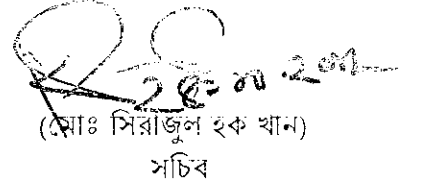 (মোঃ সিরাজুল হক খান)
সচিব